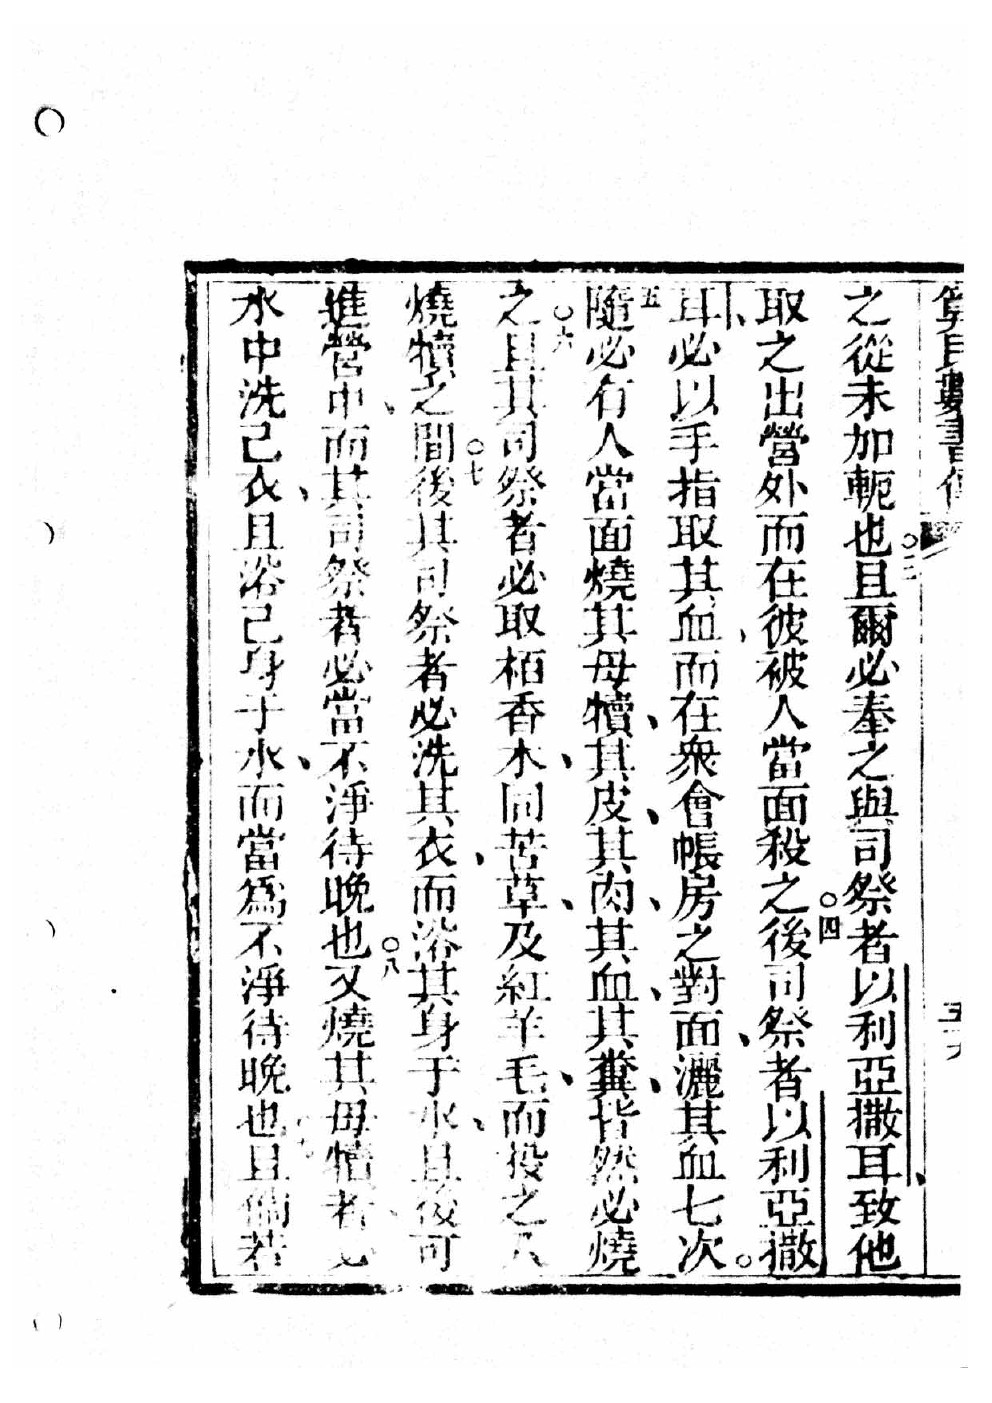 算民數書傳
五十九
之從未加軛也○三且爾必奉之與司祭者以利亞撒耳、致他
取之出營外而在彼被人當面殺之○四後司祭者以利亞撒
耳、必以手指取其血、而在衆會帳房之對面、灑其血七次○
五隨必有人當面燒其母犢、其皮、其肉、其血、其糞、皆然必燒
之○六且其司祭者必取栢香木、同苦草、及紅羊毛、而投之入
燒犢之間○七後其司祭者必洗其衣、而浴其身于水、且後可
進營中、而其司祭者必當不淨待晚也○八又燒其母犢者、必
水中洗己衣、且浴己身于水、而當爲不淨待晚也○九且倘若